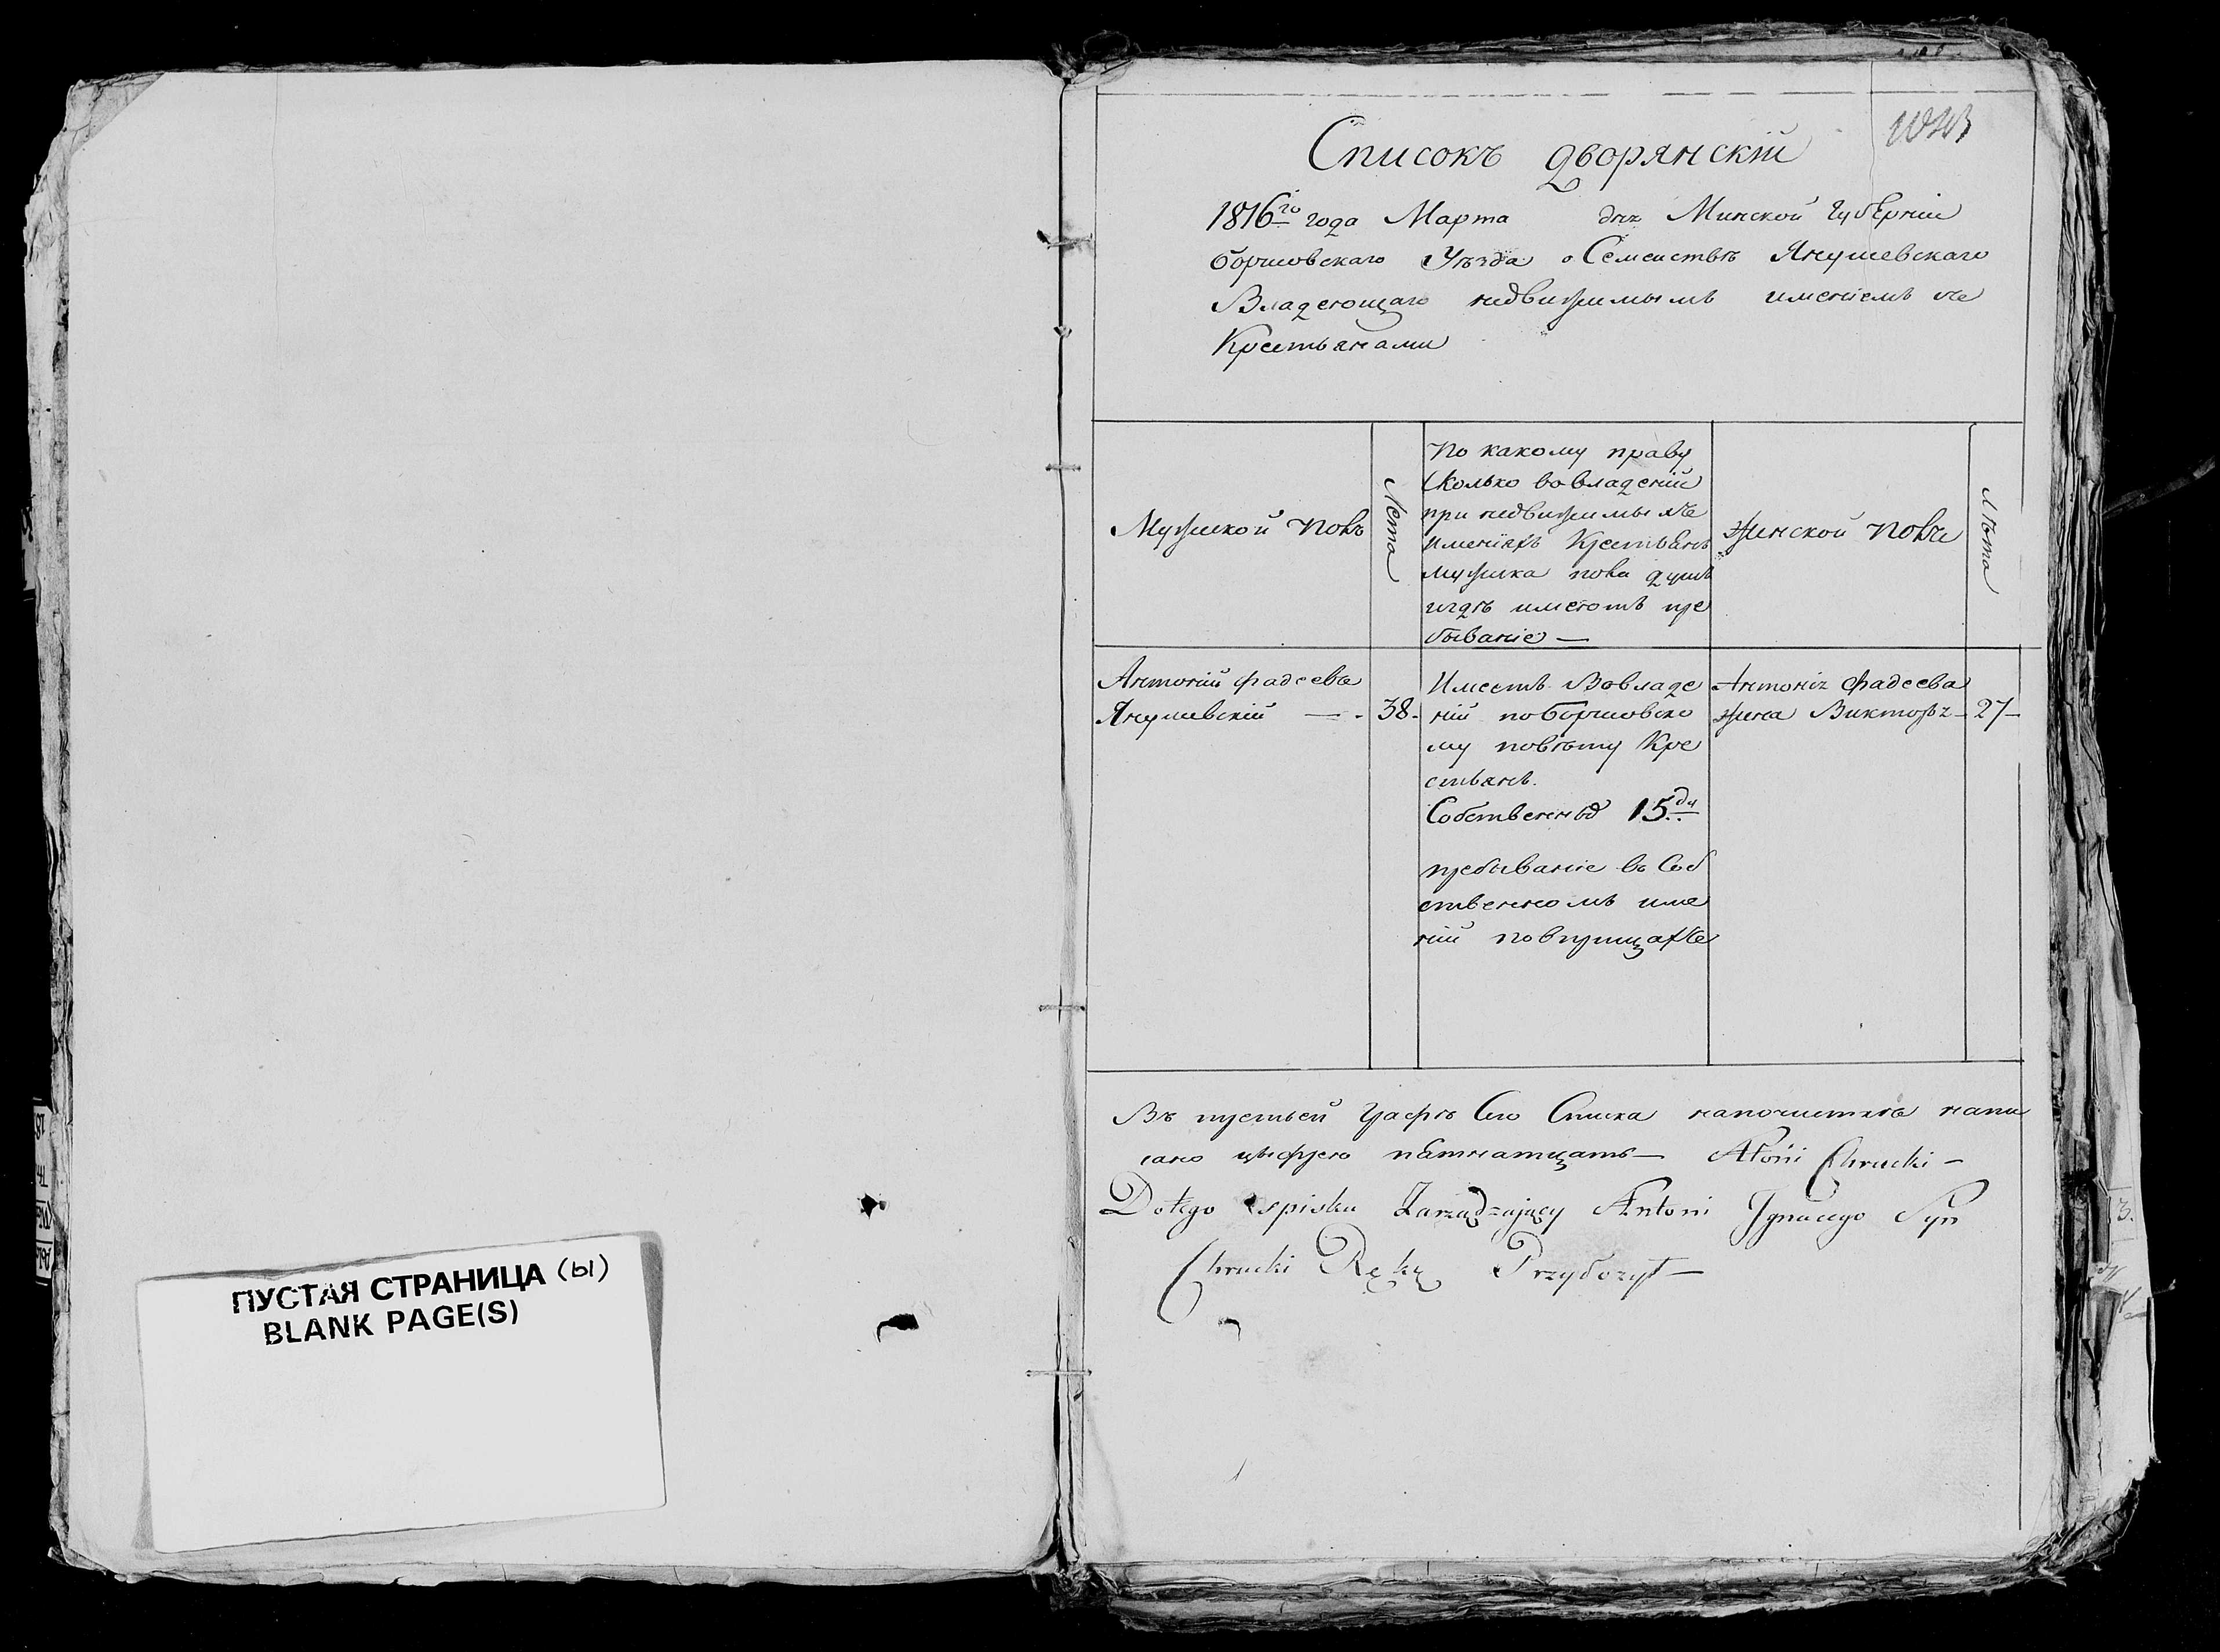 ПУСТАЯ СТРАНИЦА (ы)
BLANK PAGE(S)
Списокъ дворянскій
1816го года Марта дня Минской Губерніи
Борисовскаго Уѣзда о Семействѣ Янушевскаго
Владеющаго недвижимымъ имениемъ съ
Крестьянами
Мужеской полъ
Лета
По какому праву
сколько во владеніи
при недвижимыхъ
Именіяхъ Крестьянъ
мужска пола душъ
игдѣ имеютъ пре
бываніе —
Женской полъ
Лѣта
Антоній Фадеевъ
Янушевскій — 38.
Имеетъ Вовладе
ніи по Борисовско
му повѣту Кре
стьянъ.
Собственныхъ 15 ду
пребываніе въ Соб
ственномъ име
ніи
Антонія Фадеева
жена Викторія — 27 —
Въ третьей Графѣ Сего Списка напочисткѣ напи
сано цыфрею пятнатцать — Antoni Chrucki —
Do tego spisku Zarządzający Antoni Ignacego Syn
Chrucki Rękę Przyłożył —